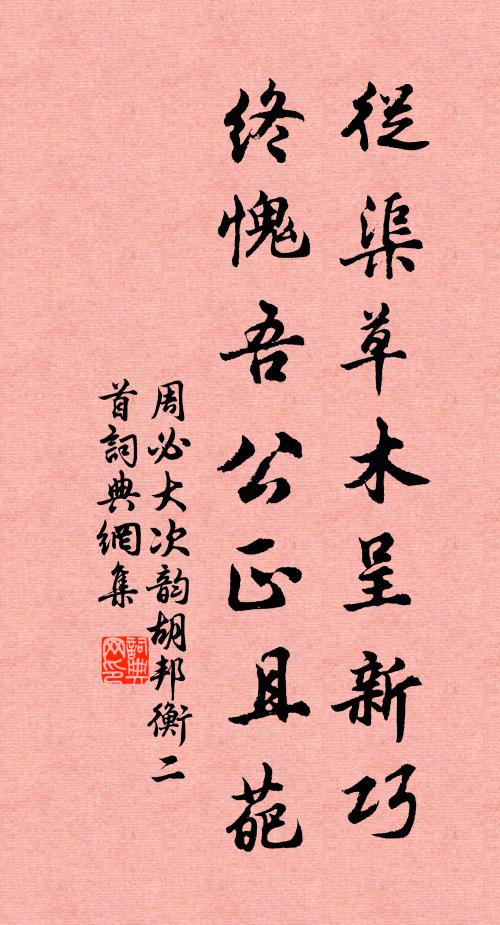 從渠草木呈新巧
終愧吾公正且葩
周必大次韵胡邦衡二
首詞典網集
詞典网印